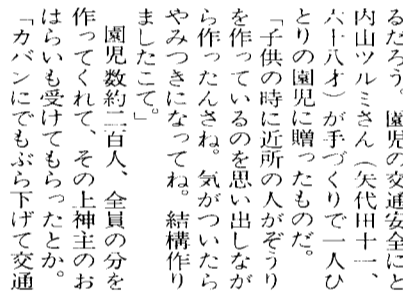 るだろう。園児の交通安全にと
内山ツルミさん（矢代田十一、
六十八才）が手づくりで一人ひ
とりの園児に贈ったものだ。
「子供の時に近所の人がぞうり
を作っているのを思い出しなが
ら作ったんさね。気がついたら
やみつきになってね。結構作り
ましたこて。」
園児数約二百人、全員の分を
作ってくれて、その上神主のお
はらいも受けてもらったとか。
「カバンにでもぶら下げて交通